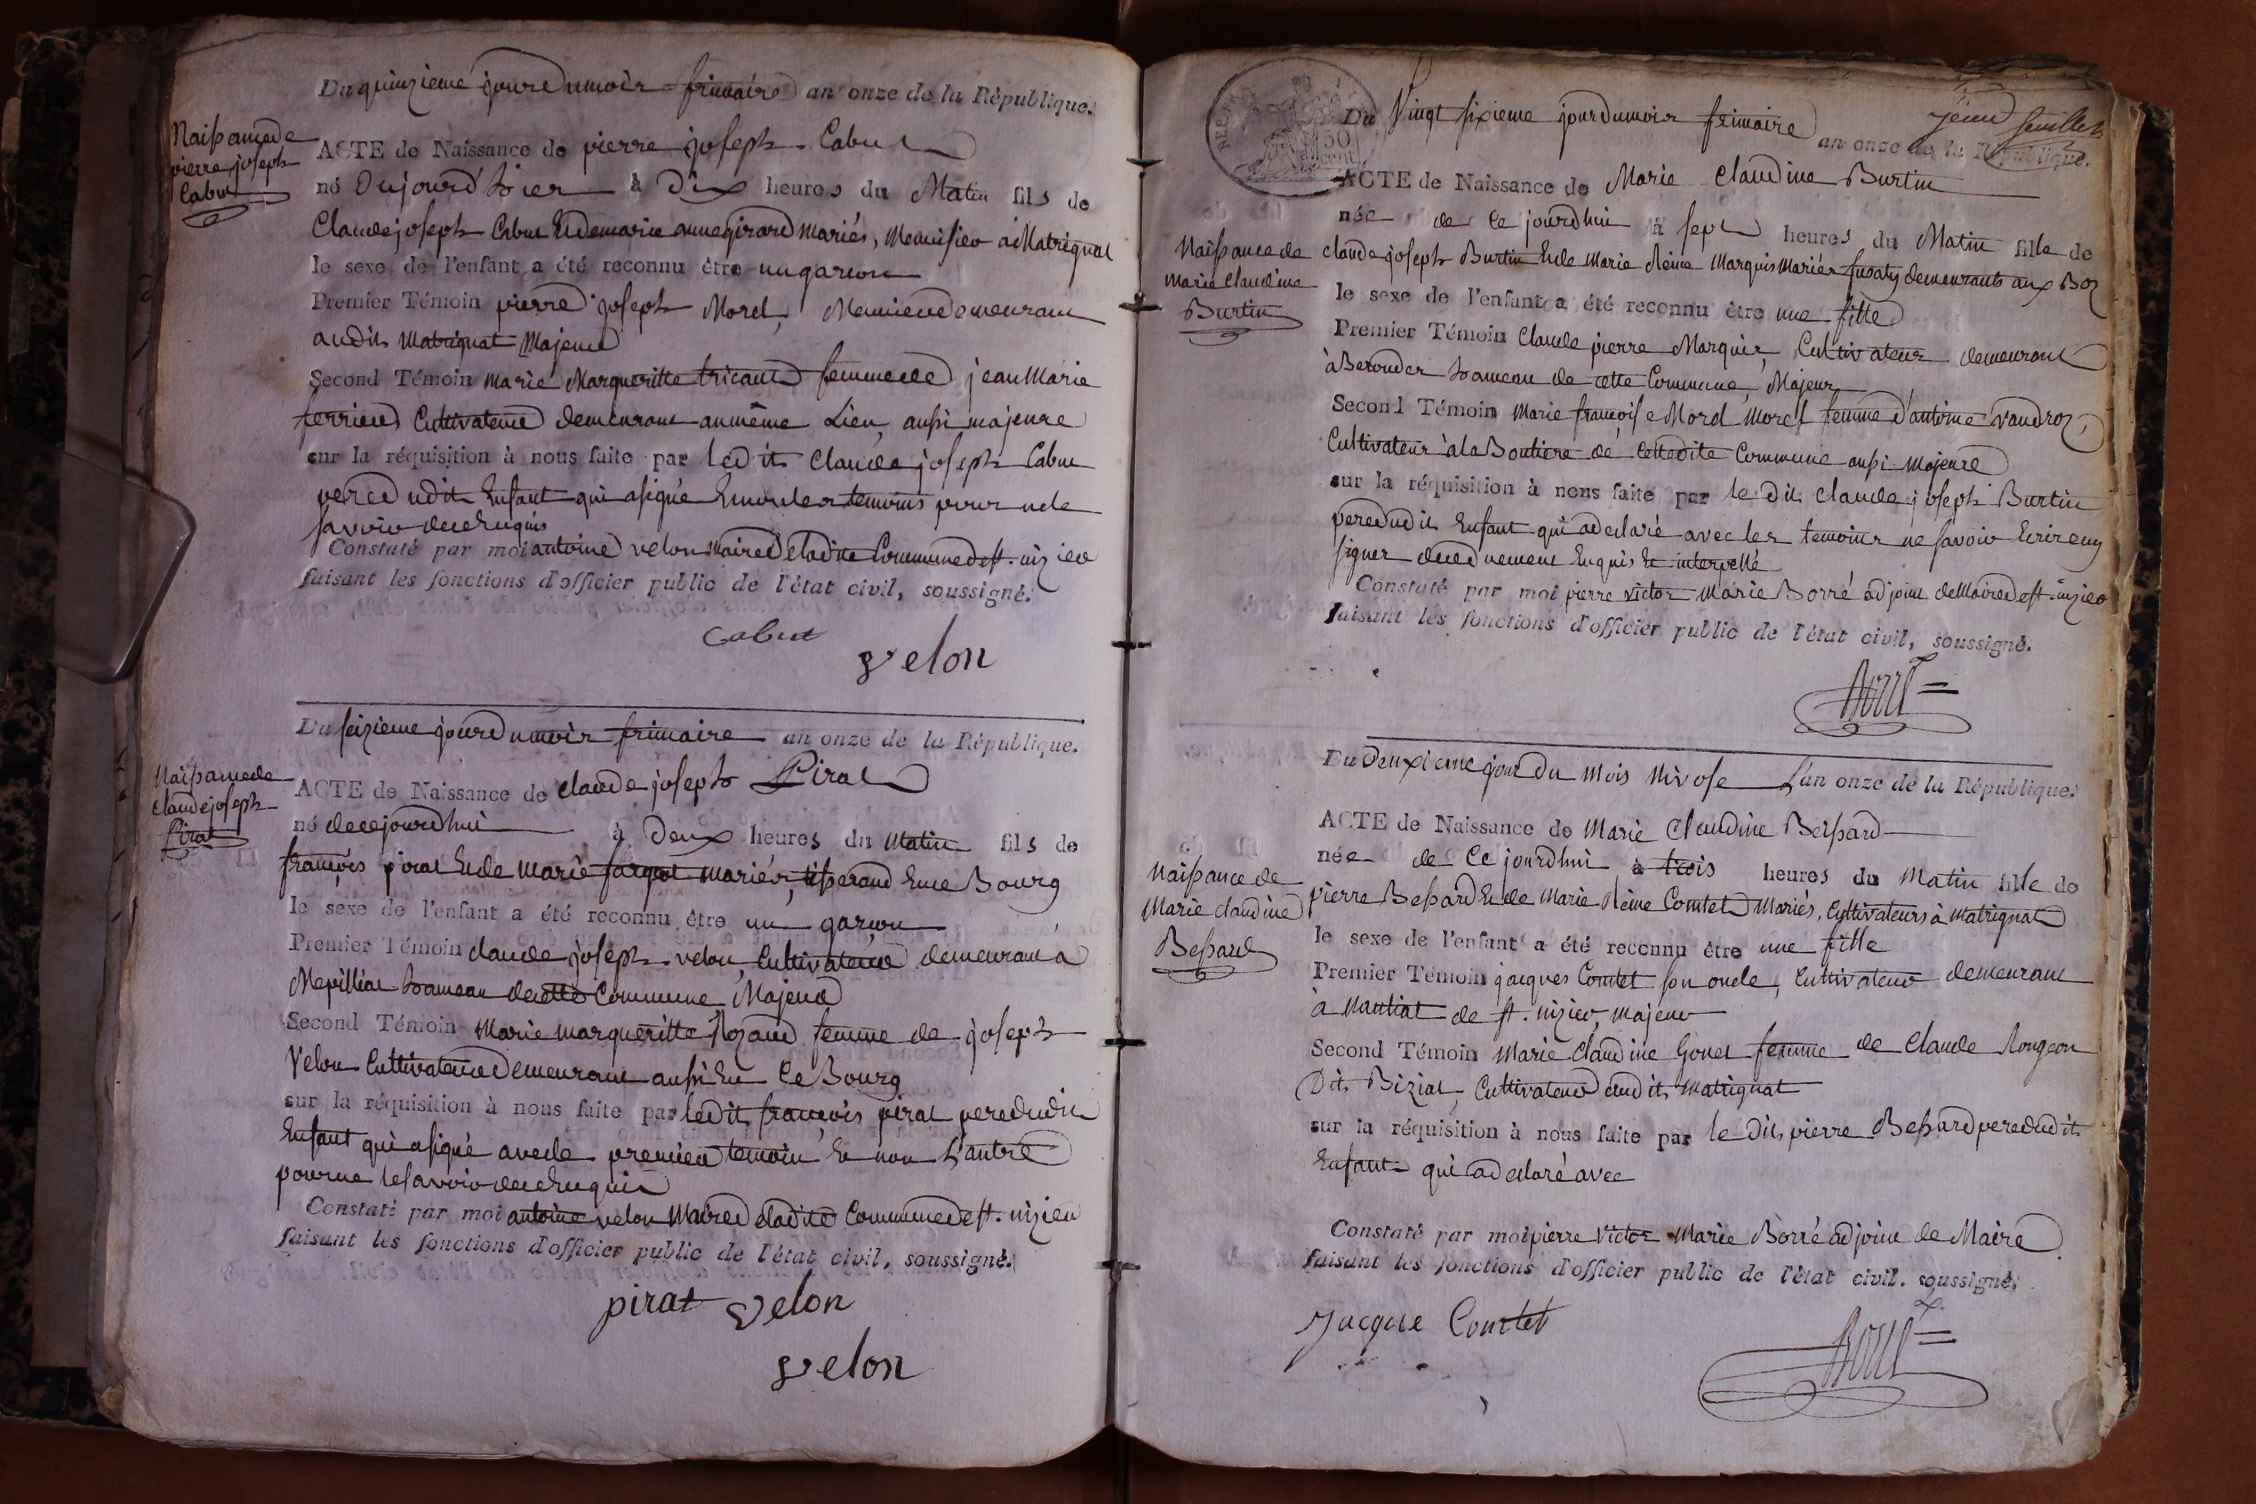 Du quinzieme jour du mois frimaire an onze de la République.
Naissance de
pierre joseph
Cabut
ACTE de Naissance de pierre joseph Cabut
né Oujourd'hier à Dix heures du Matin fils de
Claude joseph Cabut Et de marie anne girard mariés, Meunsier à Matrignat
le sexe de l'enfant a été reconnu être un garcon
Premier Témoin pierre joseph Morel, Meunier demeurant
audit Matrignat Majeur
Second Témoin marie Margueritte tricaud femme de jean Marie
ferrieu Cultivateur demeurant au même Lieu, aussi majeure
sur la réquisition à nous faite par ledit Claude joseph Cabut
pere dudit Enfant qui a signé Et non les temoins pour ne le
savoir de ce Enquis
Constaté par moi antoine velon maire de ladite Commune de st. nizier
faisant les fonctions d'officier public de l'état civil, soussigné.
Cabut
velon
Du seizieme jour du mois frimaire an onze de la République.
Naissance de
claude joseph
Pirat
ACTE de Naissance de claude joseph Pirat
né de ce jourd'hui à Deux heures du Matin fils de
françois pirat Et de Marie mariés, tisserand En ce Bourg
le sexe de l'enfant a été reconnu être un garcon
Premier Témoin claude joseph velon, Cultivateur demeurant à
Mepilliat hameau de cette Commune, Majeur
Second Témoin Marie margueritte Rozand femme de joseph
Velon Cultivateur demeurant aussi En Ce Bourg
sur la réquisition à nous faite par ledit françois pirat pere dudit
Enfant qui a signé avec le premier temoin Et non L'autre
pour ne le savoir de ce Enquis
Constaté par moi antoine velon Maire de ladite Commune de st. nizier
faisant les fonctions d'officier public de l'état civil, soussigné.
pirat velon
velon
feuillet
Du Vingt sixieme jour du mois frimaire an onze de la République.
ACTE de Naissance de Marie Claudine Burtin
née de Ce jourdhui à sept heures du Matin fille de
Naissance de
marie Claudine
Burtin
claude joseph Burtin Et de Marie Reine Marquis Mariés demeurants aux Boz
le sexe de l'enfant a été reconnu être une fille
Premier Témoin Claude pierre Marquis, Cultivateur demeurant
à Berouder hameau de cette Commune, Majeur
Second Témoin Marie françoise Mord Morel femme d'antoine Vaudroz,
Cultivateur à la Boutiere de Cette dite Commune aussi Majeure
sur la réquisition à nous faite par le dit claude joseph Burtin
pere dudit Enfant qui a declaré avec les temoins ne savoir Ecrire ny
signer de ce duement Enquis Et interpellé
Constaté par moi pierre victor Marie Borré adjoint de Maire de st. nizier
faisant les fonctions d'officier public de l'état civil, soussigné.
Borré
Du Deuxieme jour du Mois Nivose L'an onze de la République.
ACTE de Naissance de Marie Claudine Bessard
née de Ce jourdhui à trois heures du Matin fille de
Naissance de
Marie claudine
Bessard
pierre Bessard Et de Marie Reine Comtet Mariés, Cultivateurs à Matrignat
le sexe de l'enfant a été reconnu être une fille
Premier Témoin jacques Comtet son oncle, Cultivateur demeurant
à Mantiat de st. nizier, majeur
Second Témoin Marie Claudine Gonet femme de Claude Rongeon
Dit Biziat, Cultivateur audit Matrignat
sur la réquisition à nous faite par le Dit pierre Bessard pere dudit
Enfant qui a declaré avec
Constaté par moi pierre Victor Marie Borré adjoint de Maire
faisant les fonctions d'officier public de l'état civil. soussigné.
Jacque Comtet
Borré